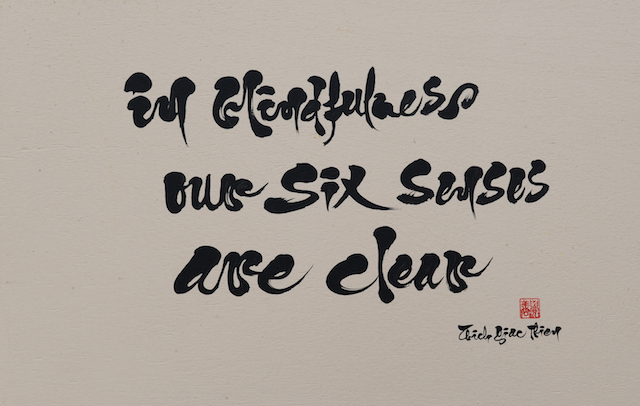 in Mindfulness
our six senses
are clear
Thich Giac Thien